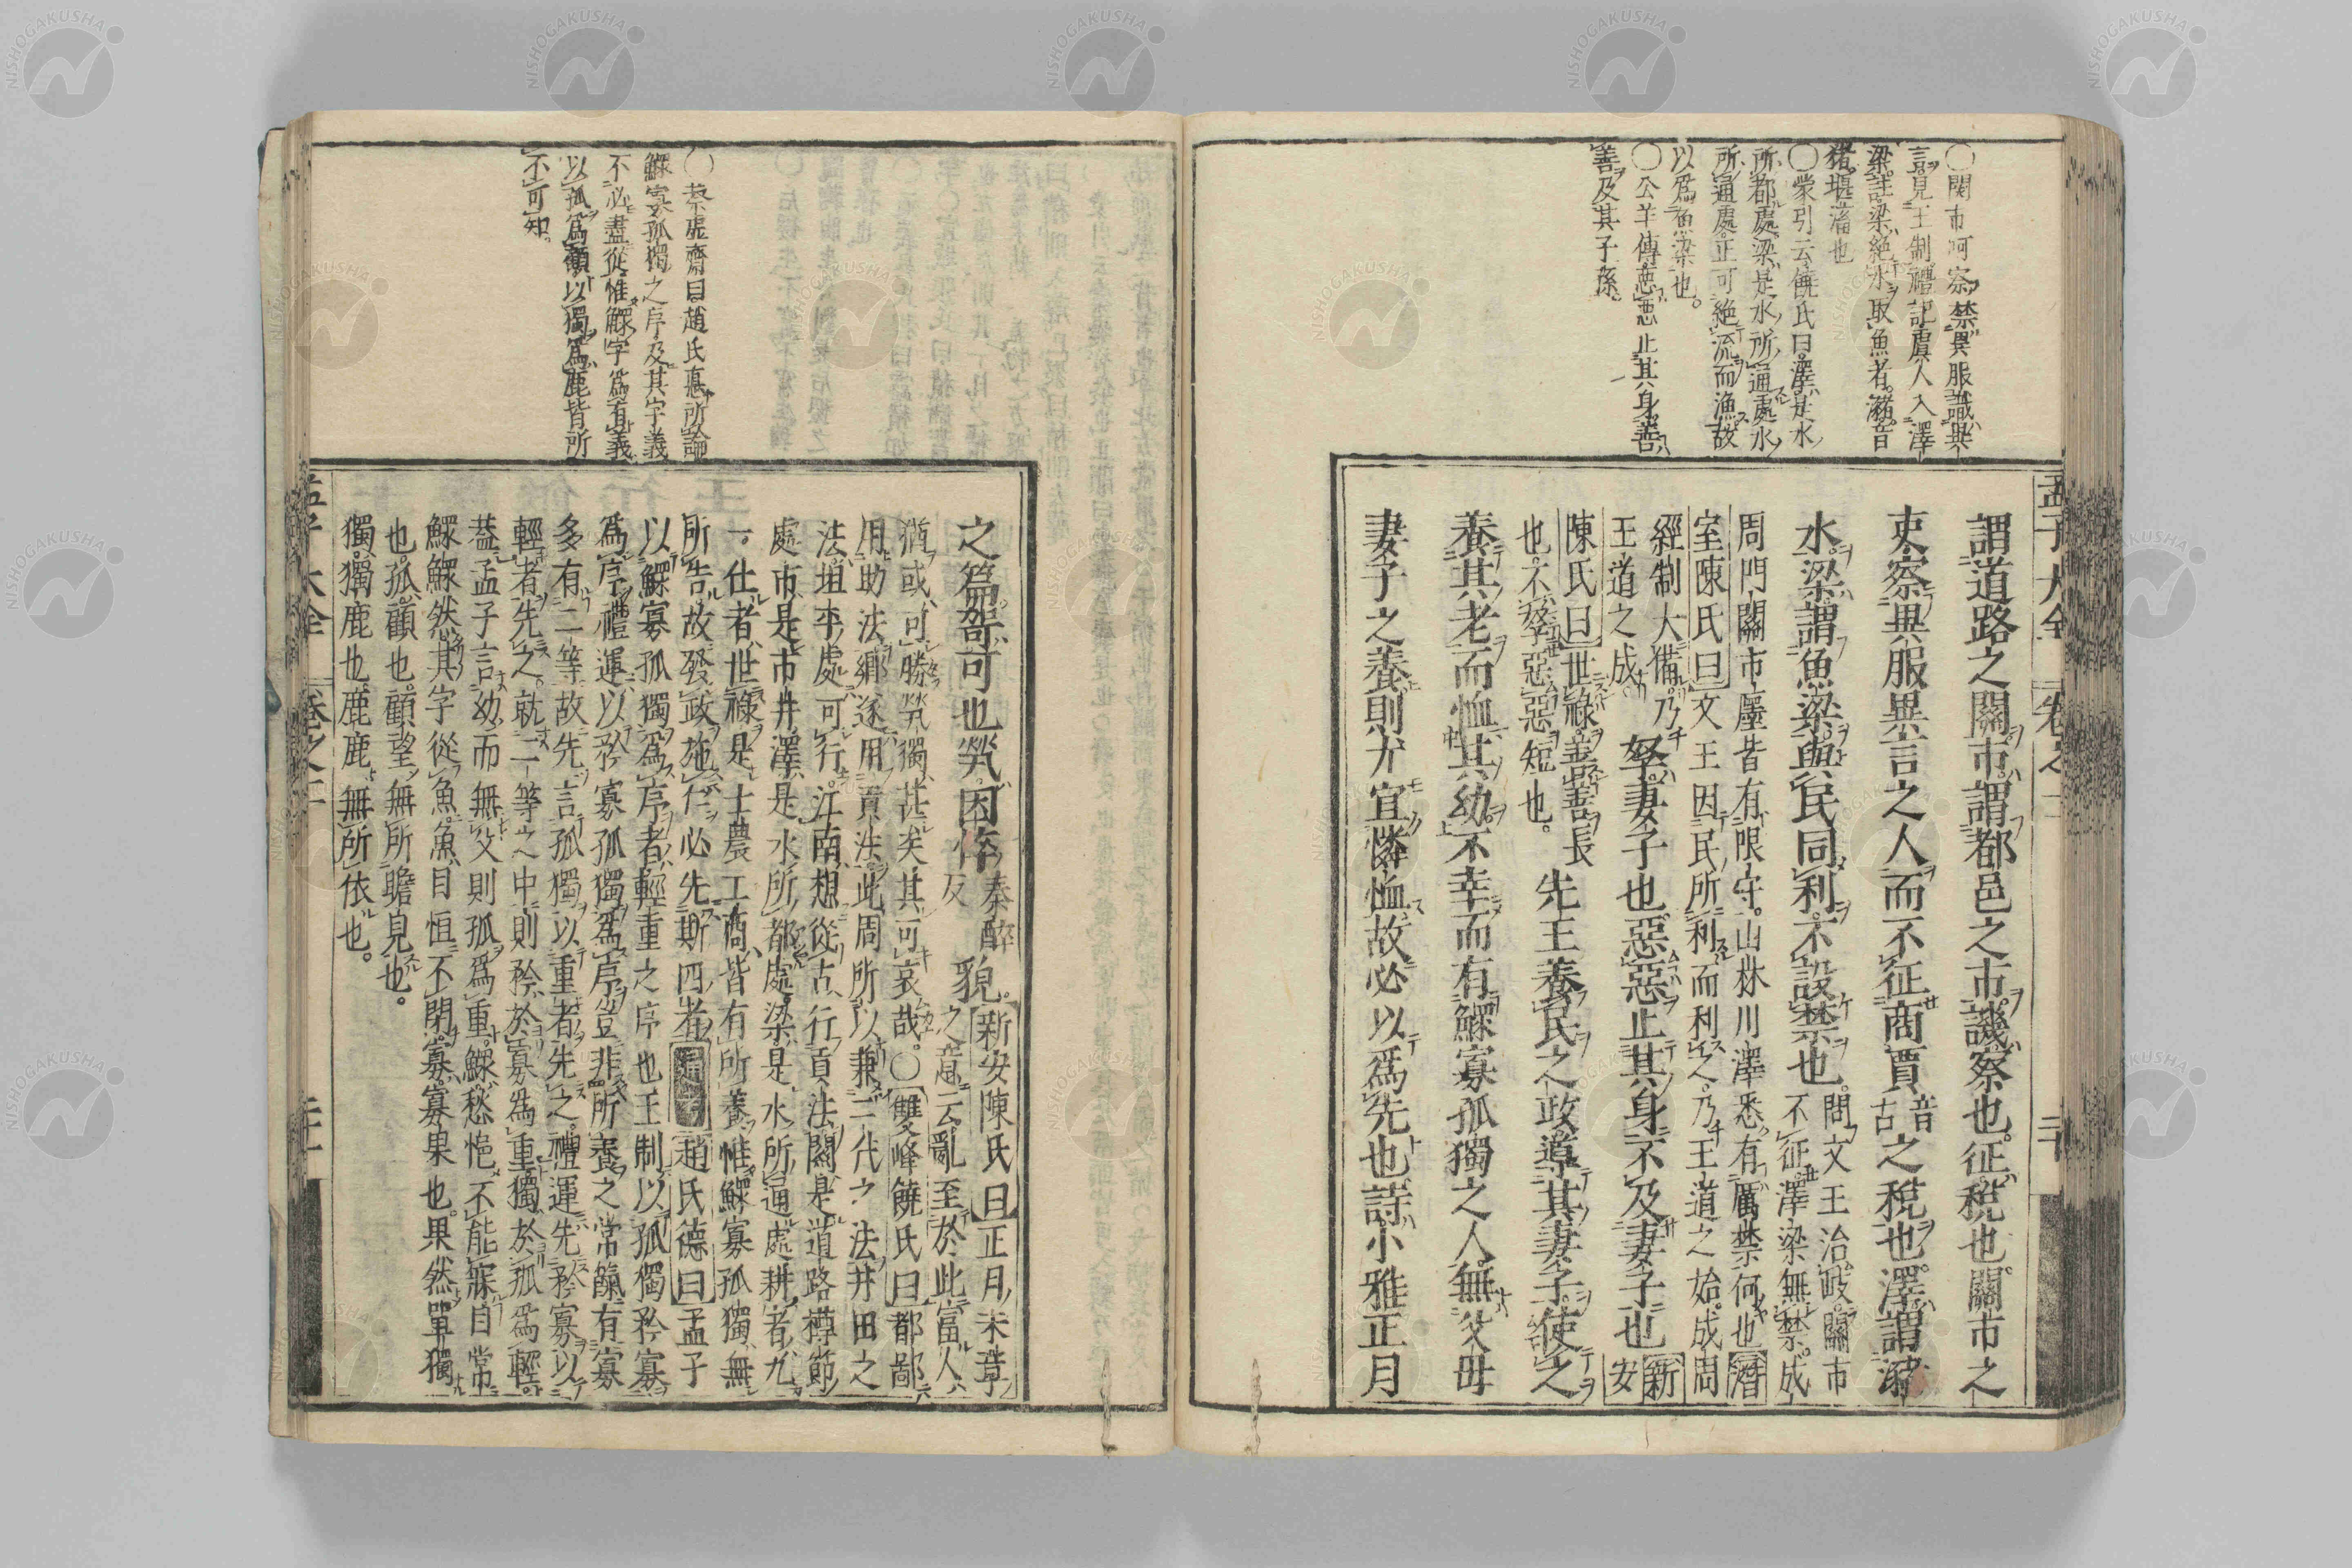 孟子大全
卷之二
二十
〇関市呵察禁異服識異
言見王制禮記虞人入澤
梁註梁絶水取魚者瀦音
猪堰瀦也
〇蒙引云饒氏曰澤是水
所都處梁是水所通處水
所通處正可絶流而漁故
以爲魚梁也
〇公羊傳惡惡止其身善
善及其子孫
謂道路之關市謂都邑之市譏察也征税也關市之
吏察異服異言之人而不征商賈音古之税也澤謂瀦
水梁謂魚梁與民同利不設禁也問文王治岐關市
不征澤梁無禁成
周門關市廛皆有限守山林川澤悉有厲禁何也潛
室陳氏曰文王因民所利而利之乃王道之始成周
經制大備乃
王道之成
孥妻子也惡惡止其身不及妻子也新安
陳氏曰世祿善善長
也不孥惡惡短也
先王養民之政導其妻子使之
養其老而恤其幼不幸而有鰥寡孤獨之人無父母
妻子之養則尤宜憐恤故必以爲先也詩小雅正月
〇蔡虚齋曰趙氏悳所論
鰥寡孤獨之序及其字義
不必盡從惟鰥字爲有義
以孤爲顧以獨爲鹿皆所
不可知
之篇哿可也煢困悴秦醉反貌新安陳氏曰正月末章
之意云亂至於此富人
猶或可勝煢獨甚矣其可哀哉〇雙峰饒氏曰都鄙
用助法鄉遂用貢法此周所以兼二代之法井田之
法垣平處可行江南想從古行貢法關是道路樽節
處市是市井澤是水所都處梁是水所通處耕者九
一仕者世祿是士農工商皆有所養惟鰥寡孤獨無
所告故發政施仁必先斯四者 趙氏德曰孟子
以鰥寡孤獨爲序者輕重之序也王制以孤獨矜寡
爲序禮運以矜寡孤獨爲序豈非所養之常餼有寡
多有二等故先言孤獨以重者先之禮運先矜寡以
輕者先之就二等之中則矜於寡爲重獨於孤爲輕
蓋孟子言幼而無父則孤爲重鰥愁悒不能寐目常
鰥鰥然其字從魚魚目恒不閉寡寡果也果然單獨
也孤顧也顧望無所瞻見也
獨獨鹿也鹿鹿無所依也
孟子大全
卷之二
二十一